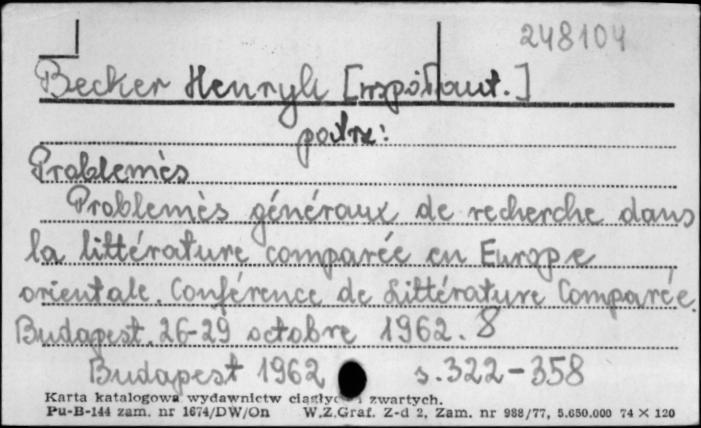 248104
Becker Henryk [współaut.]
patrz:
Problemès
Problemès généraux de recherche dans
la littérature comparée en Europe
orientale. Conférence de Littérature Comparée.
Budapest. 26-29 octobre 1962. 8
Budapest 1962 s. 322-358
Karta katalogowa wydawnictw ciągłych i zwartych.
Pu-B-144 zam. nr 1674/DW/On W.Z.Graf. Z-d 2, Zam. nr 988/77, 5.650.000 74 X 120